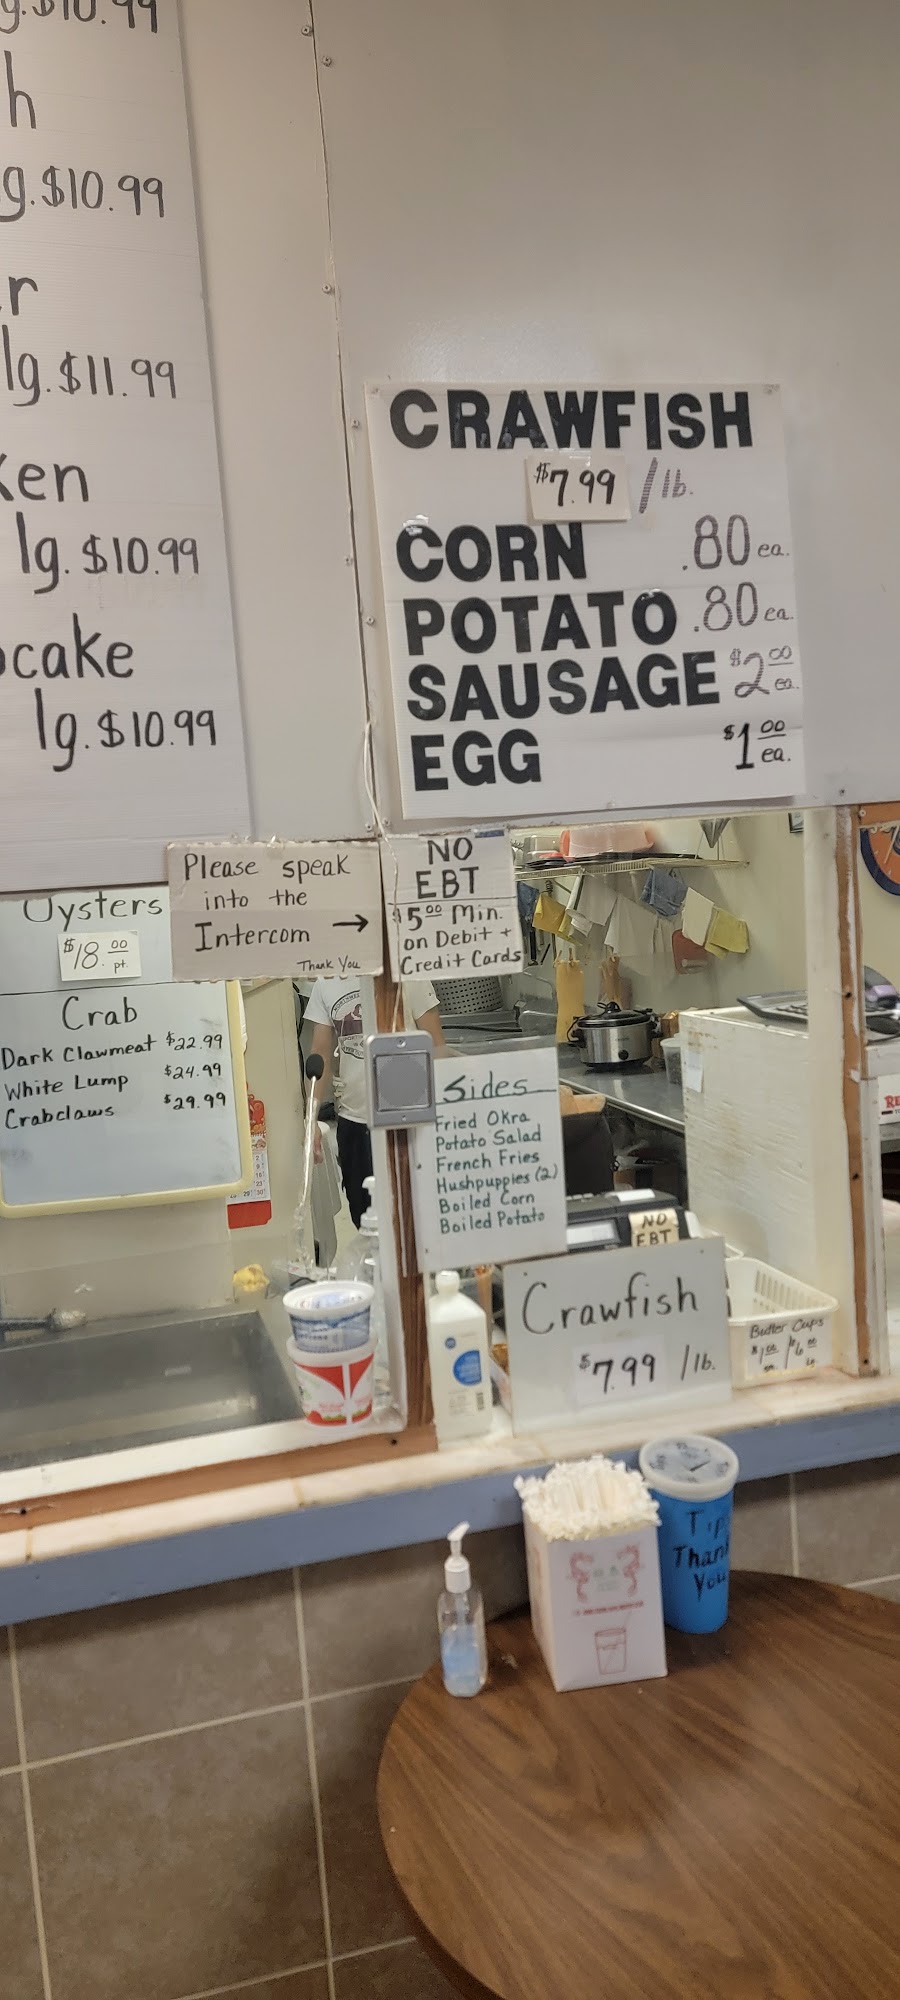 g.$10.99
h
g.$10.99
r
lg.$11.99
ken
lg.$10.99
cake
lg.$10.99
CRAWFISH
$7.99 /lb.
CORN .80 ea.
POTATO .80 ea.
SAUSAGE $2.00 ea.
EGG $1.00 ea.
Please speak
into the
Intercom →
Thank You
NO
EBT
$5.00 Min.
on Debit +
Credit Cards
Oysters
$18.00 pt.
Crab
Dark Clawmeat $22.99
White Lump $24.99
Crabclaws $29.99
Sides
Fried Okra
Potato Salad
French Fries
Hushpuppies (2)
Boiled Corn
Boiled Potato
NO
EBT
Crawfish
$7.99 /lb.
Butter Cups
Tip
Thank
You